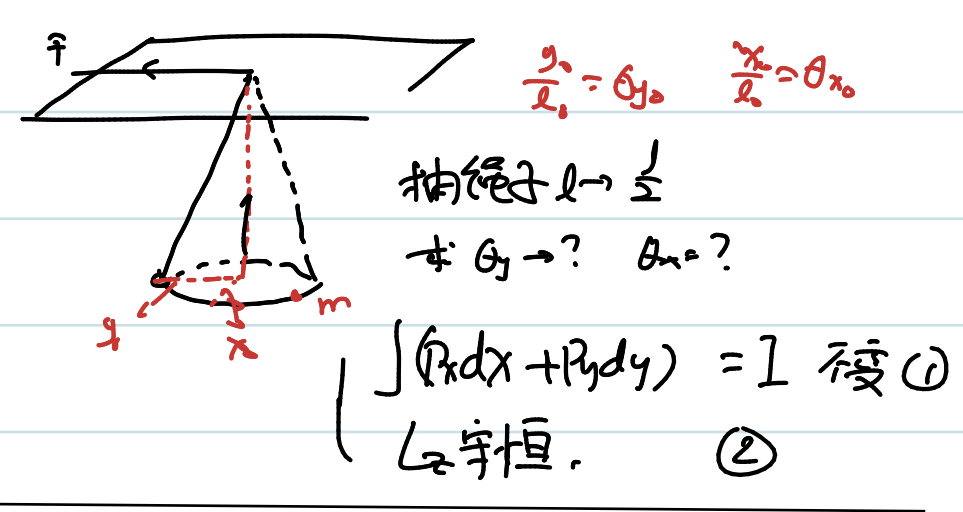 T
y₀/l₀ = θy₀  x₀/l₀ = θx₀
抽绳子 l → l/2
求 θy → ? θx = ?
y
x
m
∫(Pxdx + Pydy) = I 不变 ①
Lz守恒. ②